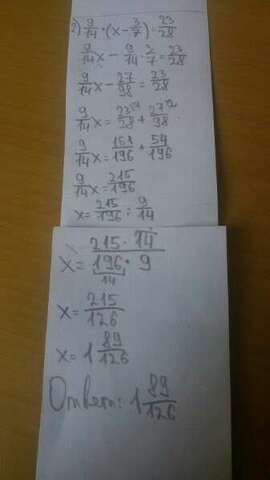 2) 9/14 · (x - 3/7) = 23/28
9/14 x - 9/14 · 3/7 = 23/28
9/14 x - 27/98 = 23/28
9/14 x = 23/28 + 27/98
9/14 x = 161/196 + 54/196
9/14 x = 215/196
x = 215/196 : 9/14
x = 215 · 14 / 196 · 9
14
x = 215/126
x = 1 89/126
Ответ: 1 89/126